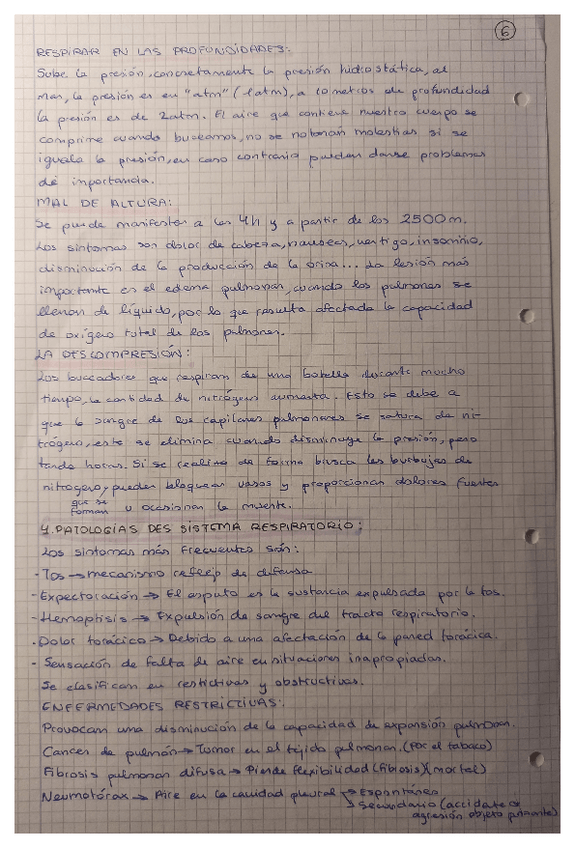 6
RESPIRAR EN LAS PROFUNDIDADES:
Sube la presión, concretamente la presión hidrostática, al
mar, la presión es en "atm" (1atm), a 10 metros de profundidad
la presión es de 2atm. El aire que contiene nuestro cuerpo se
comprime cuando buceamos, no se notarán molestias si se
iguala la presión, en caso contrario pueden darse problemas
de importancia.
MAL DE ALTURA:
Se puede manifestar a las 4h y a partir de los 2500m.
Los síntomas son dolor de cabeza, nauseas, vertigo, insomnio,
disminución de la producción de la orina... La lesión más
importante es el edema pulmonar, cuando los pulmones se
llenan de líquido, por lo que resulta afectada la capacidad
de oxígeno total de los pulmones.
LA DESCOMPRESIÓN:
Los buceadores que respiran de una botella durante mucho
tiempo, la cantidad de nitrógeno aumenta. Esto se debe a
que la sangre de los capilares pulmonares se satura de ni-
trógeno, este se elimina cuando disminuye la presión, pero
tarda horas. Si se realiza de forma brusca las burbujas de
nitrogeno, pueden bloquear vasos y proporcionar dolores fuertes
que se
forman u ocasionar la muerte.
4. PATOLOGÍAS DES SISTEMA RESPIRATORIO:
Los síntomas más frecuentes son:
- Tos → mecanismo reflejo de defensa
- Expectoración → El esputo es la sustancia expulsada por la tos.
- Hemoptisis → Expulsión de sangre del tracto respiratorio.
. Dolor torácico → Debido a una afectación de la pared torácica.
- Sensación de falta de aire en situaciones inapropiadas.
Se clasifican en restrictivas y obstructivas.
ENFERMEDADES RESTRICTIVAS:
Provocan una disminución de la capacidad de expansión pulmonar.
Cancer de pulmón → Tumor en el tejido pulmonar. (Por el tabaco)
Fibrosis pulmonar difusa → Pierde flexibilidad (fibrosis) (mortal)
Neumotórax → Aire en la cavidad pleural → Espontáneo
→ Secundario (accidente o
agresión objeto punzante)